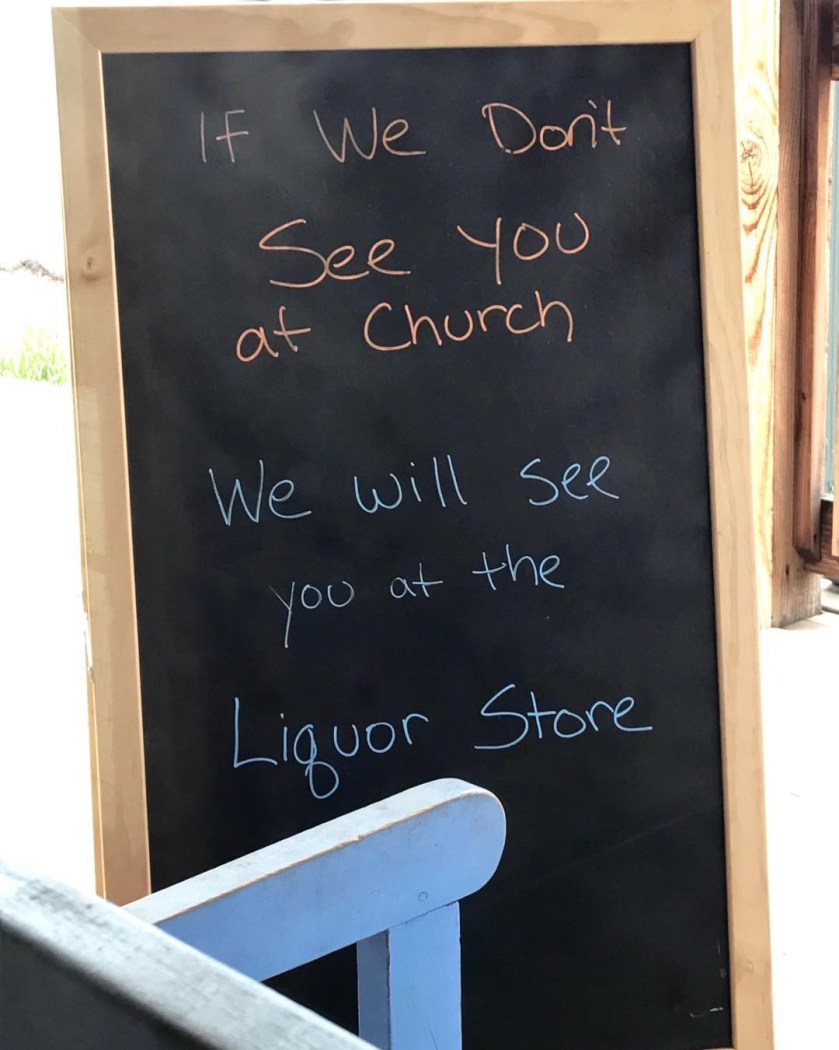 If We Don't
See You
at Church
We will see
you at the
Liquor Store